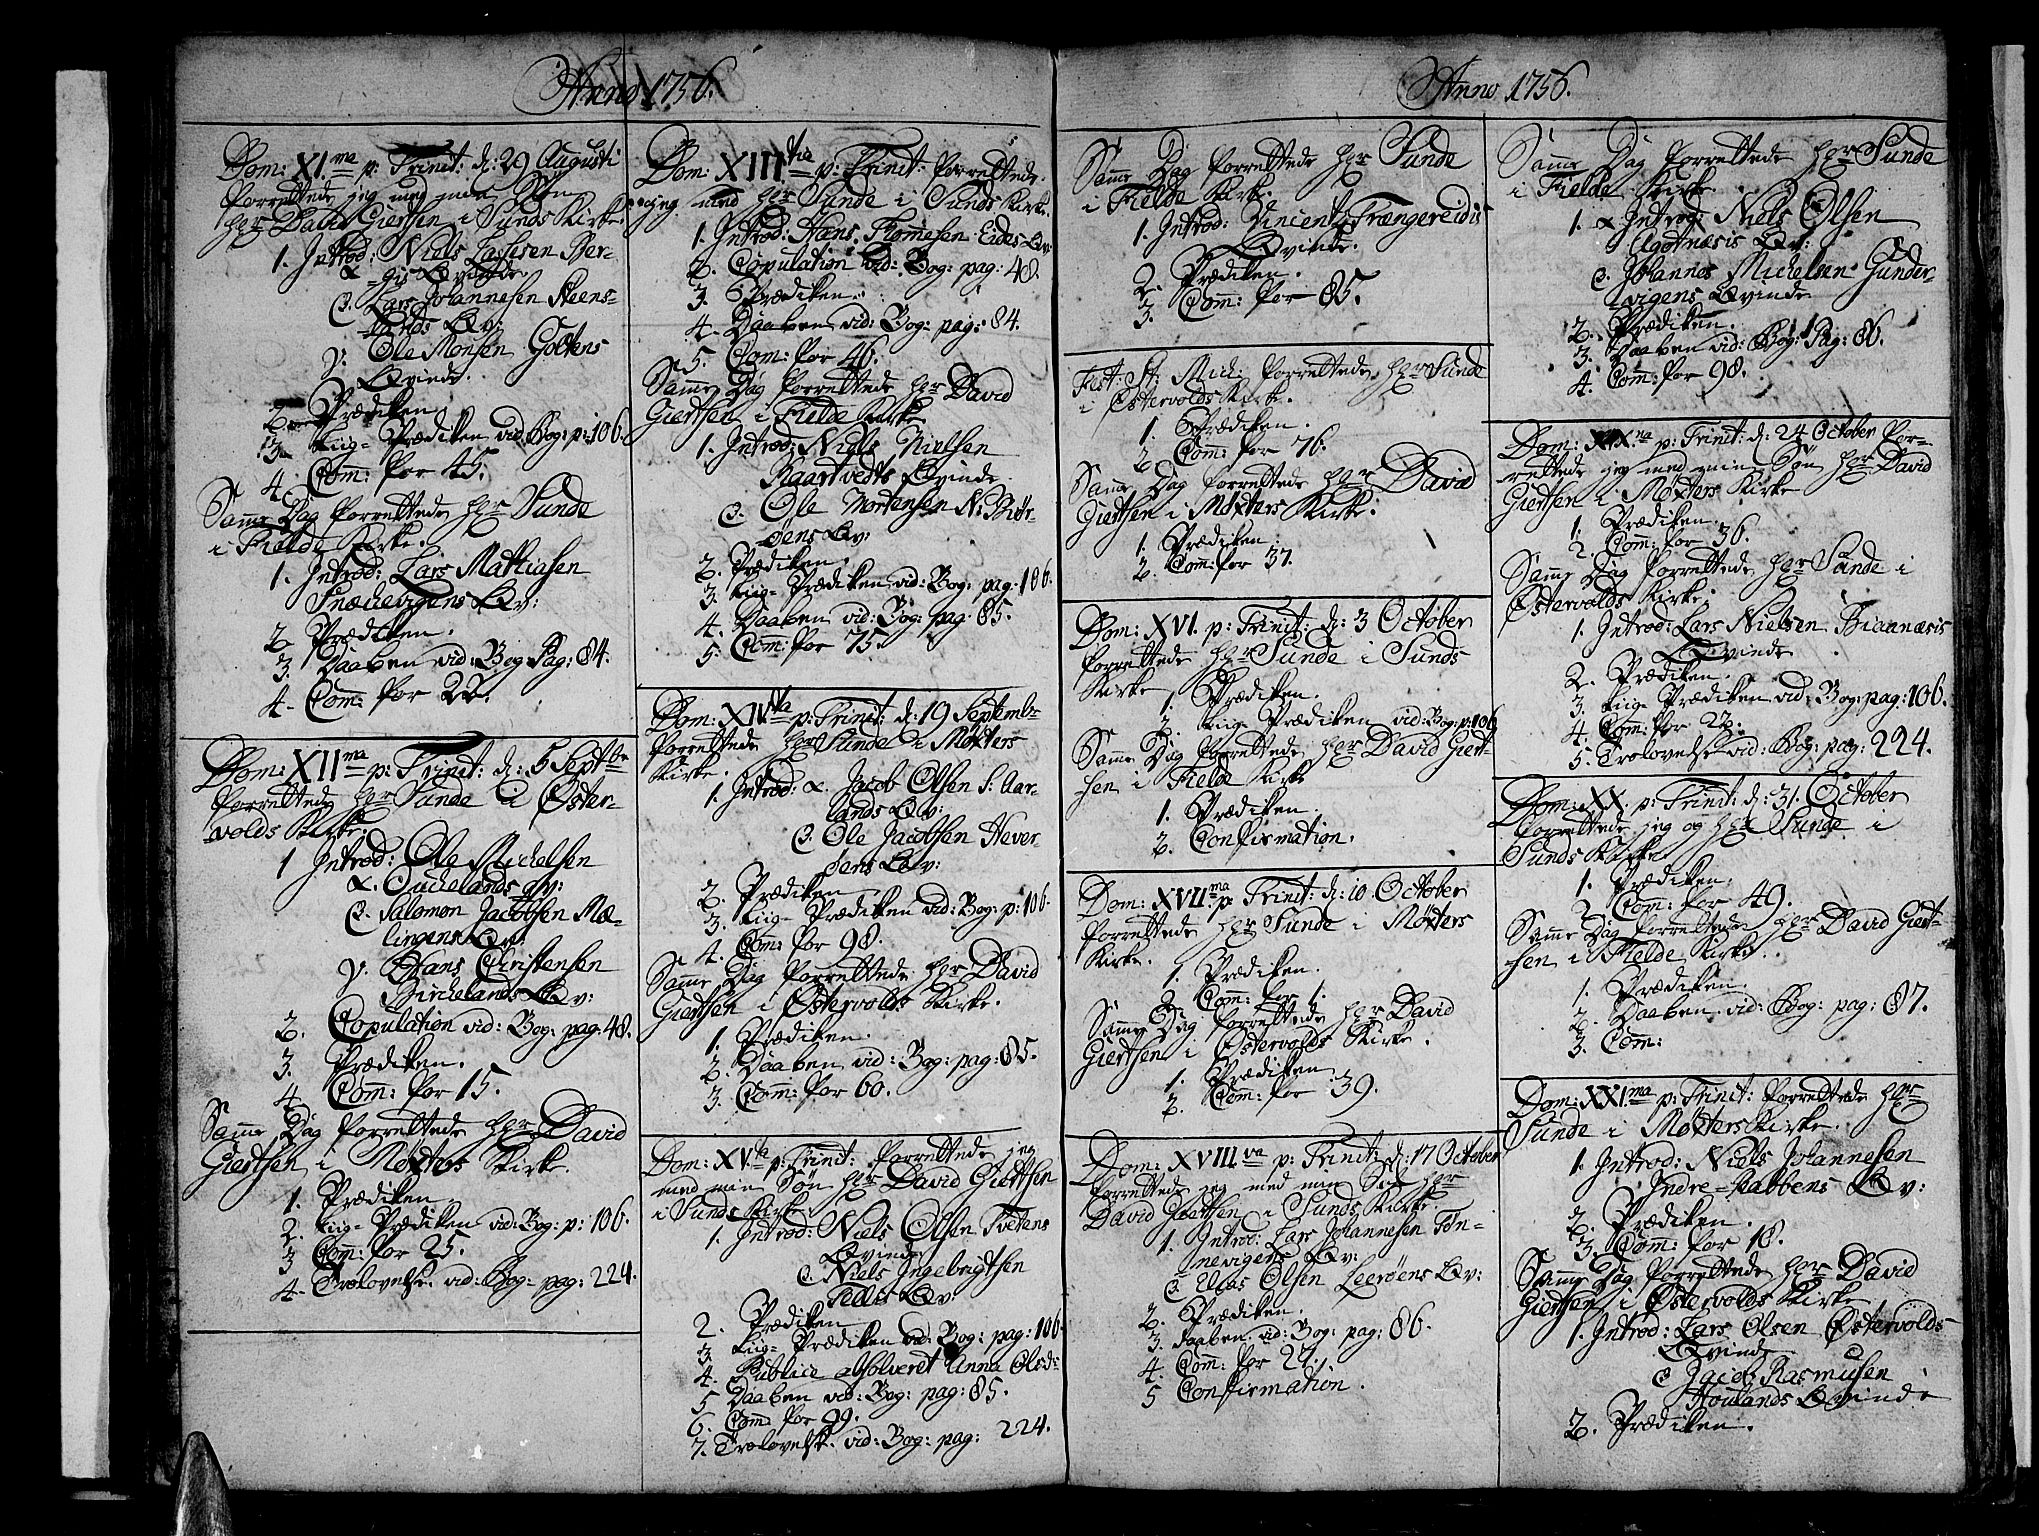 Anno 1756.
Dom: XI.ma p: Trinit: d: 29 Augusti
forrettede jeg med min Søn
hr David Giertsen i Sunds Kirke.
1. Introd: Niels Larsen Ber-
α gis Qvinde
β. Lars Johannesen Steens-
lands Qv:
γ. Ole Monsen Goltens
Qvinde.
2. Prædiken.
3. Liig-Prædiken vid: Bog: p: 106.
4. Com̄: for 45.
Samme Dag forrettede hr Sunde
i Fielde Kirke.
1. Introd: Lars Mathiasen
Snæchevigens Qv:
2. Prædiken.
3. Daaben vid: Bog Pag: 84.
4. Com̄: for 22.
Dom: XII ma p: Trinit: d: 5 Septbr
forrettede hr Sunde i Øster-
volds Kirke.
1 Introd: Ole Michelsen
α. Suchelands Qv:
β. Salomon Jacobsen Mæ-
lingens Qv:
γ. Hans Christensen
Birchelands Qv:
2. Copulation vid: Bog: pag: 48.
3. Prædiken.
4. Com̄: for 15.
Samme Dag forrettede hr David
Giertsen i Møxters Kirke.
1. Prædiken
2. Liig-Prædiken vid: Bog: p: 106.
3 Com̄: for 25.
4. Trolovelse vid: Bog: pag: 224.
Dom: XIII tia p: Trinit: forrettede
jeg med hr Sunde i Sunds Kirke.
1. Introd: Hans Thomesen Eides Qv:
2. Copulation vid: Bog: pag: 48.
3. Prædiken.
4. Daaben vid: Bog: pag: 84.
5. Com: for 46.
Samme Dag forrettede hr David
Giertsen i Fielde Kirke.
1. Introd: Niels Nielsen
Kaartvedts Qvinde
β. Ole Mortensen N: Biør-
øens Qv:
2. Prædiken.
3. Liig-Prædiken vid: Bog: pag. 106.
4. Daaben vid: Bog: pag: 85.
5. Com̄: for 75.
Dom: XIV.ta p: Trinit: d: 19 Septembr
forrettede hr Sunde i Møxters
Kirke.
1. Introd: α. Jacob Olsen S: Aar-
lands Qv:
β. Ole Jacobsen Hever-
øens Qv:
2. Prædiken
3. Liig-Prædiken vid: Bog: p: 106.
4. Com̄: for 98.
Samme Dag forrettede hr David
Giertsen i Østervolds Kirke.
1. Prædiken.
2. Daaben vid: Bog: pag: 85.
3. Com̄: for 60.
Dom: XV.ta p: Trinit: forrettede jeg
med min Søn hr David Giertsen
i Sunds Kirke.
1. Introd: Niels Olsen Tvetens
Qvinde
β. Niels Ingebrigtsen
Qv:
2. Prædiken
3. Liig-Prædiken vid: Bog: pag: 106.
4. Publice absolveret Anna Olsdr
5 Daaben vid: Bog: pag: 85.
6. Com̄: for 99.
7. Trolovelse vid: Bog: pag: 224.
Anno 1756.
Samme Dag forrettede hr Sunde
i Fielde Kirke.
1. Introd: Vincentz Trængereidis
Qvinde.
2. Prædiken.
3. Com: for 85.
Fest: St: Mich: forrettede hr Sunde
i Østervolds Kirke.
1. Prædiken.
2. Com̄: for 76.
Samme Dag forrettede hr David
Giertsen i Møxters Kirke.
1. Prædiken.
2. Com̄: for 37.
Dom: XVI. p: Trinit: d: 3 October
forrettede hr Sunde i Sunds
Kirke
1. Prædiken.
2. Liig-Prædiken vid: Bog: p: 106
Samme Dag forrettede hr David Giert-
sen i Fielde Kirke
1. Prædiken.
2. Confirmation.
Dom: XVII ma p: Trinit: d: 10 October
forrettede hr Sunde i Møxters
Kirke.
1. Prædiken.
2. Com̄: for 1.
Samme Dag forrettede hr David
Giertsen i Østervolds Kirke.
1. Prædiken
2. Com̄: for 39.
Dom: XVIII va p: Trinit: d: 17 October
forrettede jeg med min Søn hr
David Giertsen i Sunds Kirke.
1. Introd: Lars Johannesen Tøn-
nevigens Qv:
β. Elias Olsen Leerøens Qv:
2. Prædiken.
3. Daaben vid: Bog: pag: 86.
4. Com̄: for 27.
5 Confirmation.
Samme Dag forrettede hr Sunde
i Fielde Kirke
1. α Introd: Niels Olsen
Agotnæsis Qv:
β. Johannes Michelsen Gunder-
vigens Qvinde
2. Prædiken.
3. Daaben vid: Bog: Pag: 86.
4. Com̄: for 98.
Dom: XIX na p: Trinit: d: 24 October for-
rettede jeg med min Søn hr David
Giertsen i Møxters Kirke
1. Prædiken.
2. Com̄: for 36.
Samme Dag forrettede hr Sunde i
Østervolds Kirke.
1. Introd: Lars Nielsen Biannæsis
Qvinde
2. Prædiken.
3. Liig-Prædiken vid: Bog: pag: 106.
4. Com̄: for 22.
5. Trolovelse vid: Bog: pag: 224.
Dom: XX. p: Trinit: d: 31. October
forrettede jeg og hr Sunde i
Sunds Kirke
1. Prædiken.
2. Com: for 49.
Samme Dag forrettede hr David Giert-
sen i Fielde Kirke.
1. Prædiken.
2. Daaben vid: Bog: pag: 87.
3. Com̄:
Dom: XXI ma p: Trinit: forrettede hr
Sunde i Møxters Kirke.
1. Introd: Niels Johannesen
Indre-Pabbens Qv:
2. Prædiken.
3. Com̄: for 18.
Samme Dag forrettede hr David
Giertsen i Østervolds Kirke
1. Introd: Lars Olsen Østervolds
Qvinde
β Jacob Rasmusen
Houlands Qvinde
2. Prædiken.